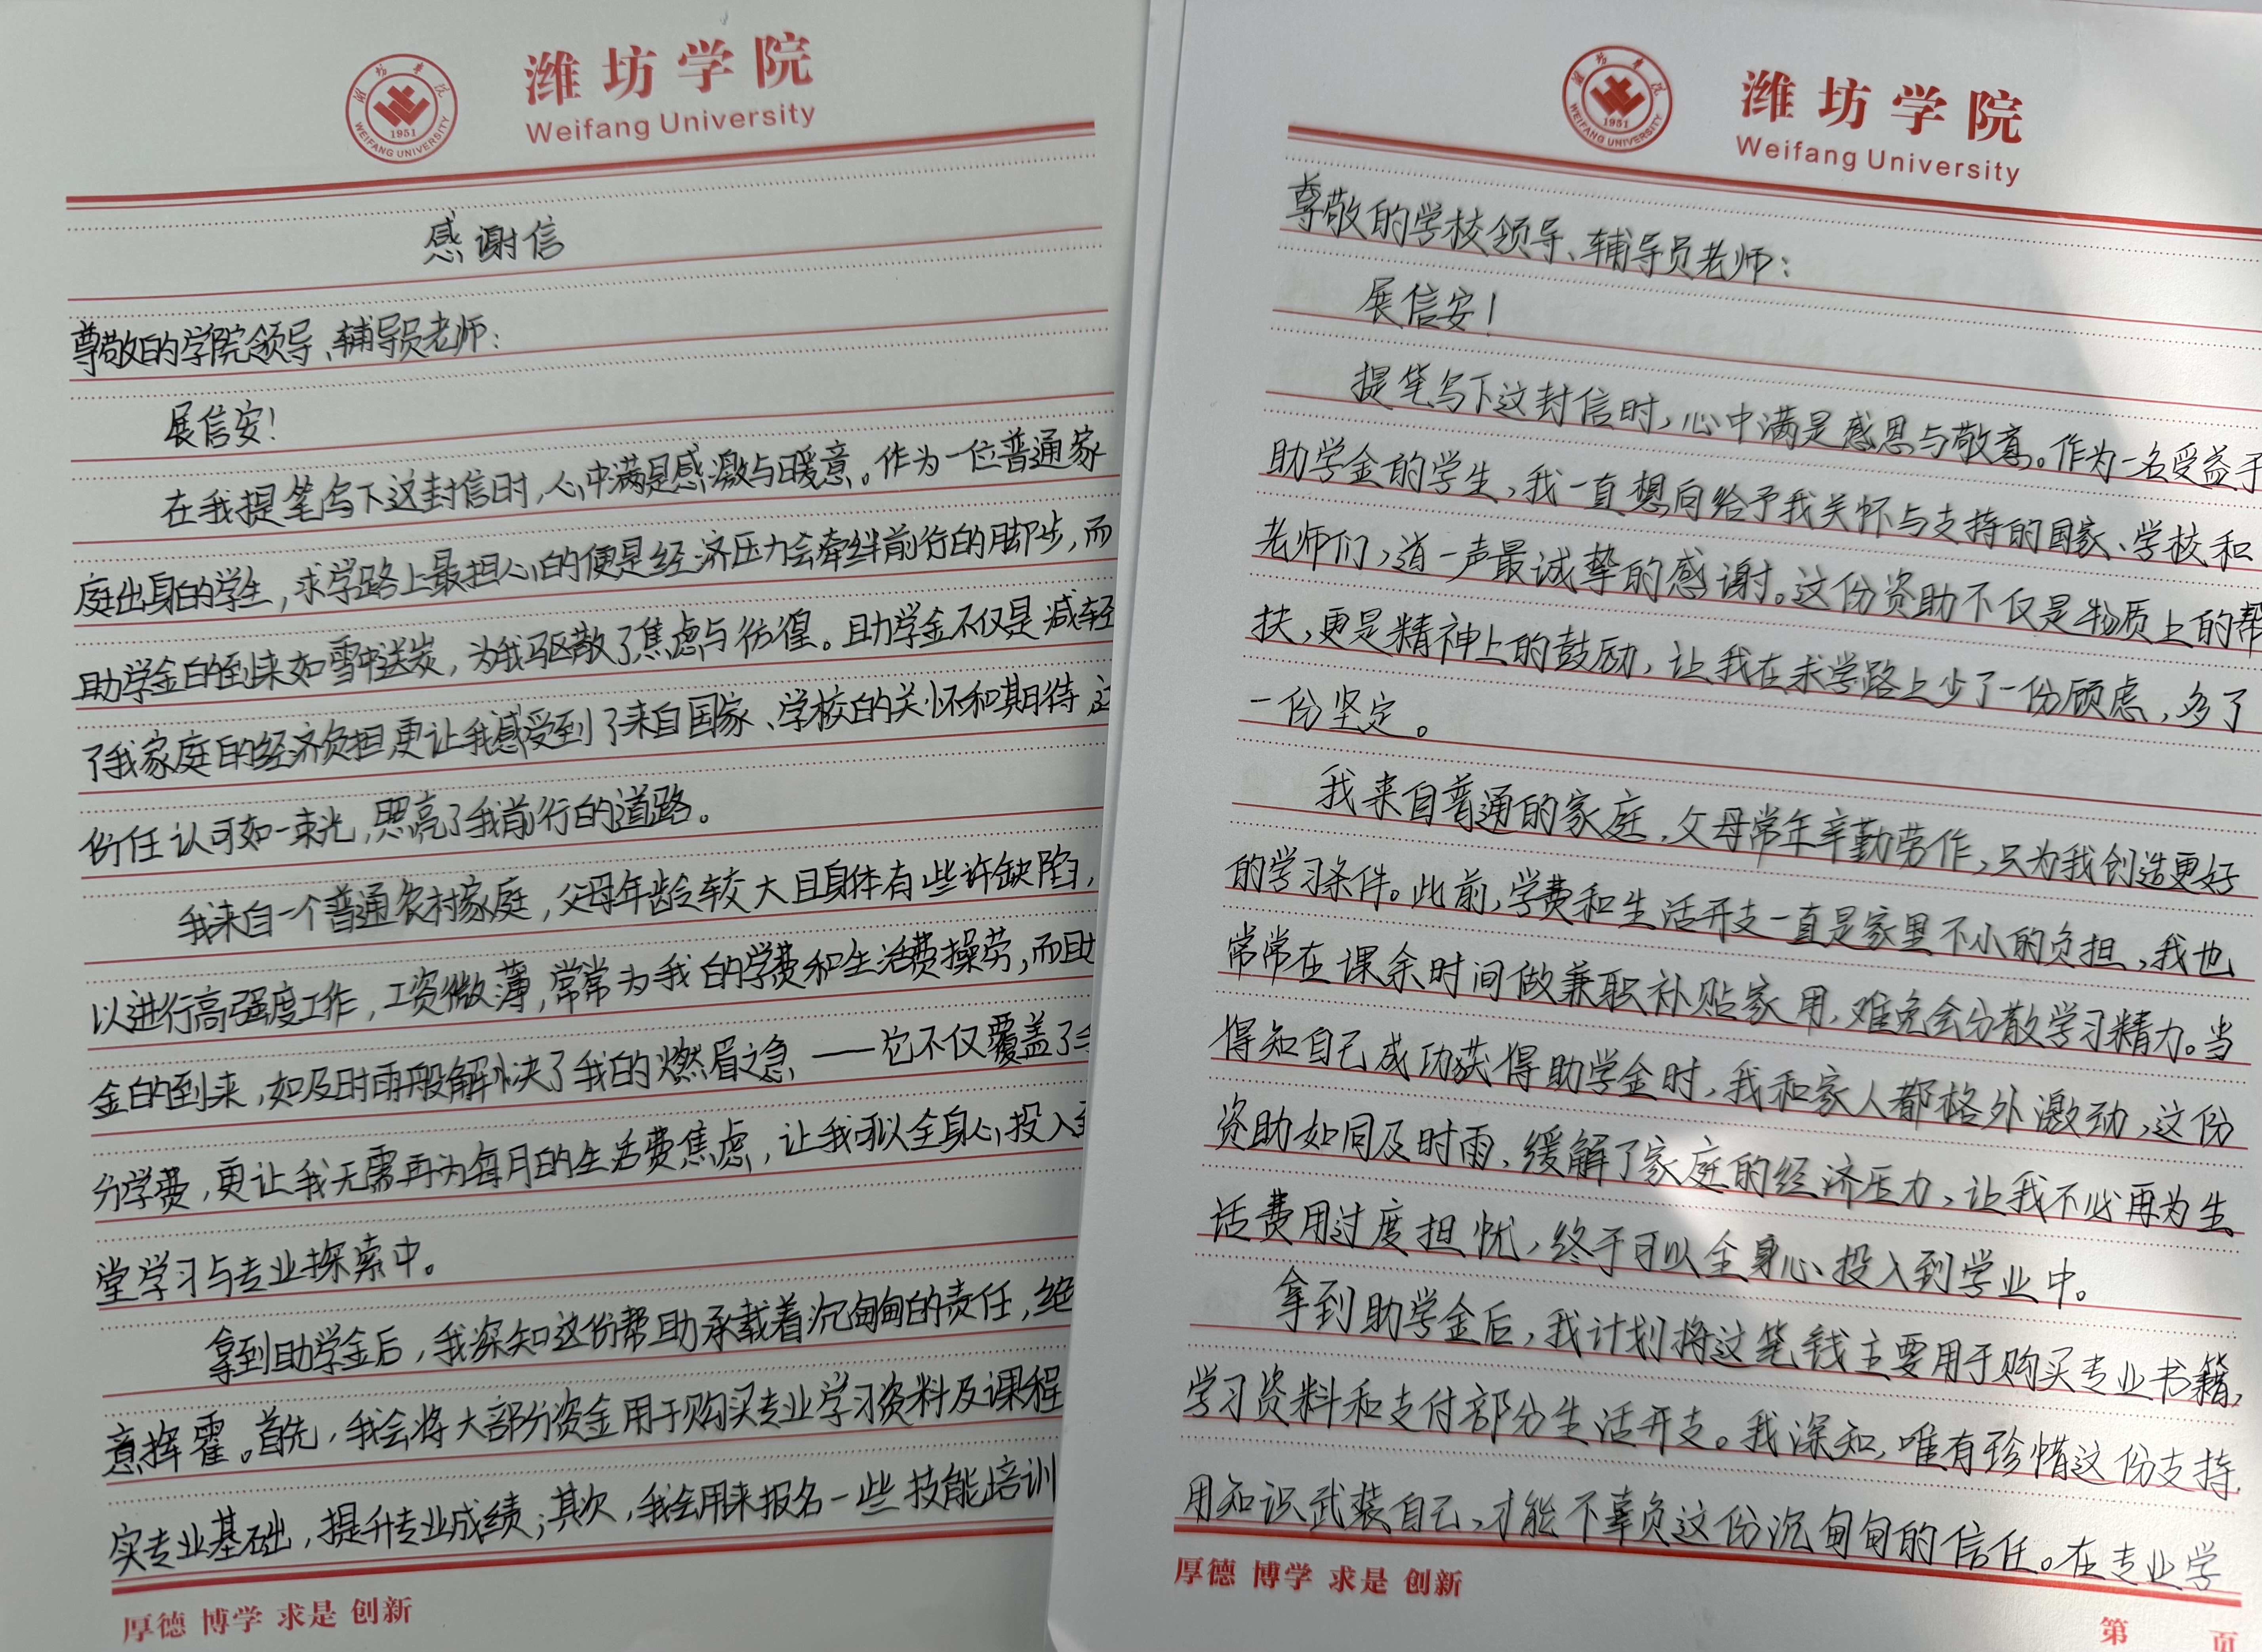 潍坊学院
Weifang University
WEIFANG UNIVERSITY
1951
感谢信
尊敬的学院领导、辅导员老师:
展信安!
在我提笔写下这封信时,心中满是感激与暖意。作为一位普通家
庭出身的学生,求学路上最担心的便是经济压力会牵绊前行的脚步,而
助学金的到来如雪中送炭,为我驱散了焦虑与彷徨。助学金不仅是减轻
了我家庭的经济负担,更让我感受到了来自国家、学校的关怀和期待
份任认可如一束光,照亮了我前行的道路。
我来自一个普通农村家庭,父母年龄较大且身体有些许缺陷,
以进行高强度工作,工资微薄,常常为我的学费和生活费操劳,而助
金的到来,如及时雨般解决了我的燃眉之急——它不仅覆盖了
分学费,更让我无需再为每月的生活费焦虑,让我可以全身心投入到
堂学习与专业探索中。
拿到助学金后,我深知这份帮助承载着沉甸甸的责任,绝
意挥霍。首先,我会将大部分资金用于购买专业学习资料及课程
实专业基础,提升专业成绩;其次,我会用来报名一些技能培训
厚德 博学 求是 创新
潍坊学院
Weifang University
WEIFANG UNIVERSITY
1951
尊敬的学校领导、辅导员老师:
展信安!
提笔写下这封信时,心中满是感恩与敬意。作为一名受益于
助学金的学生,我一直想向给予我关怀与支持的国家、学校和
老师们,道一声最诚挚的感谢。这份资助不仅是物质上的帮
扶,更是精神上的鼓励,让我在求学路上少了一份顾虑,多了
一份坚定。
我来自普通的家庭,父母常年辛勤劳作,只为我创造更好
的学习条件。此前,学费和生活开支一直是家里不小的负担,我也
常常在课余时间做兼职补贴家用,难免会分散学习精力。当
得知自己成功获得助学金时,我和家人都格外激动,这份
资助如同及时雨,缓解了家庭的经济压力,让我不必再为生
活费用过度担忧,终于可以全身心投入到学业中。
拿到助学金后,我计划将这笔钱主要用于购买专业书籍,
学习资料和支付部分生活开支。我深知,唯有珍惜这份支持,
用知识武装自己,才能不辜负这份沉甸甸的信任。在专业学
厚德 博学 求是 创新
第 页